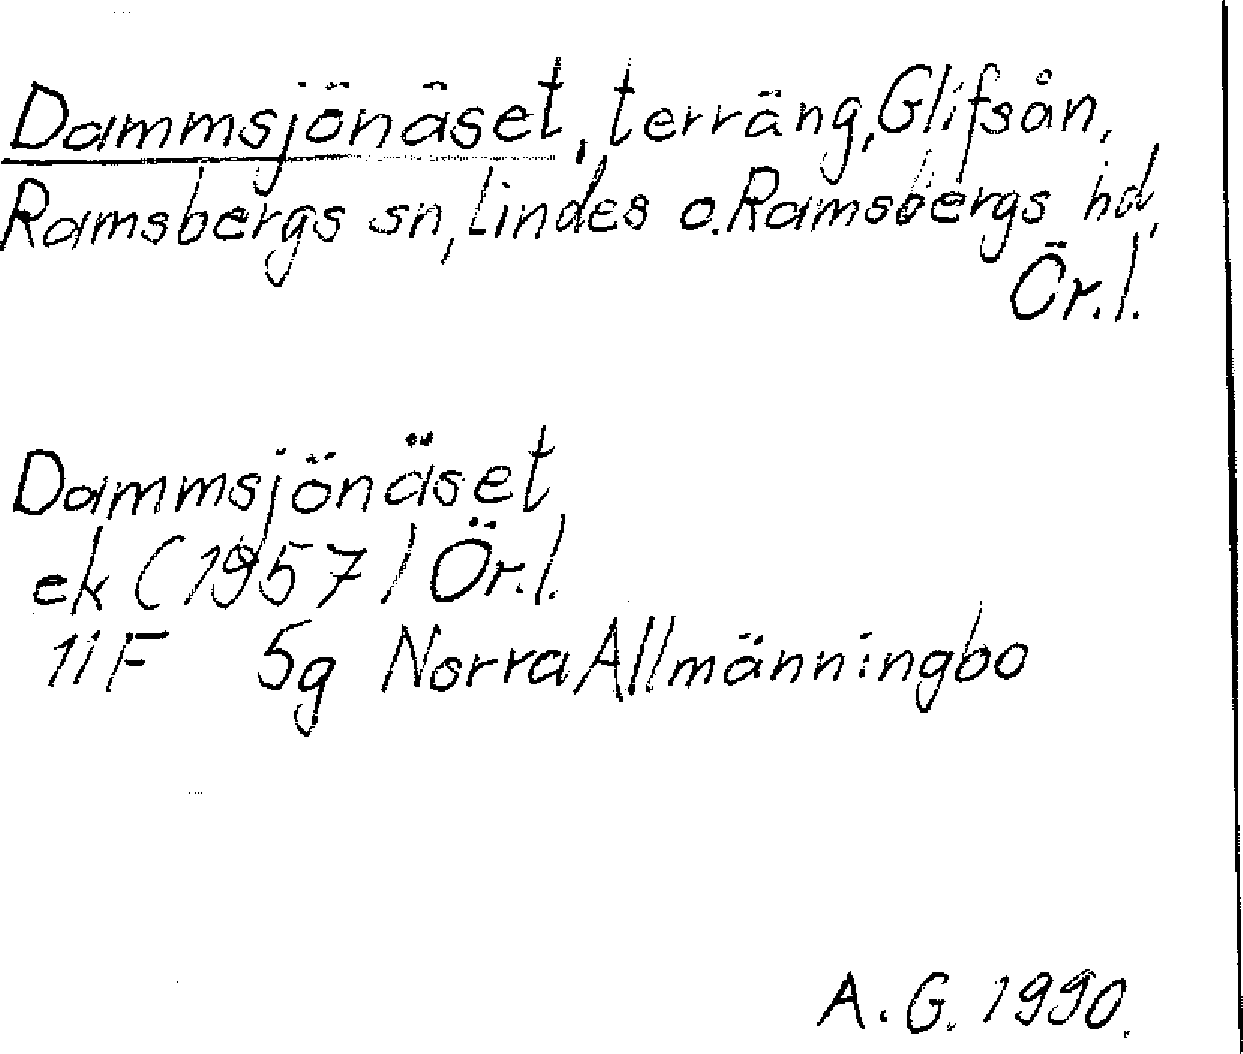 Dammsjönäset, terräng, Glifsån,
Ramsbergs sn, Lindes o. Ramsbergs hd,
Ör. l.
Dammsjönäset
ek (1957) Ör. l.
11F 5g Norra Allmänningbo
A. G. 1990.